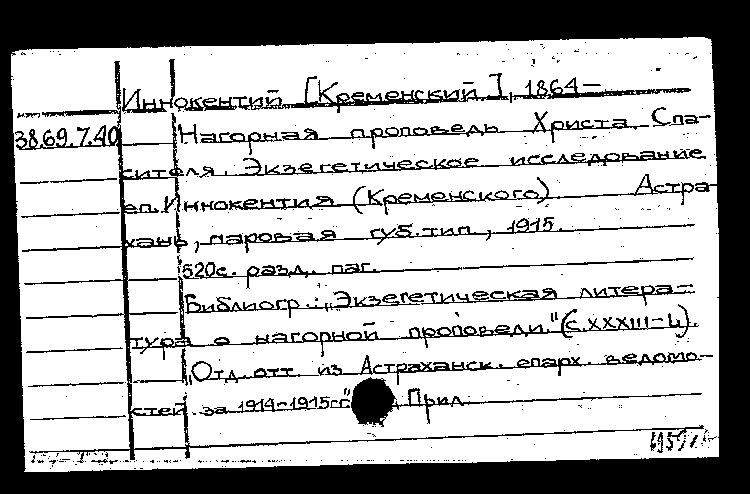 Иннокентий [Кременский], 1864-
38.69.7.40 Нагорная проповедь Христа Спа-
сителя. Экзегетическое исследование
еп. Иннокентия (Кременского) Астра-
хань, паровая губ. тип., 1915.
520с. разд. паг.
Библиогр.: "Экзегетическая литера-
тура о нагорной проповеди." (с. XXXIII-L).
"Отд. отт. из Астраханск. епарх. ведомо-
стей за 1914-1915 г.г." Прил.